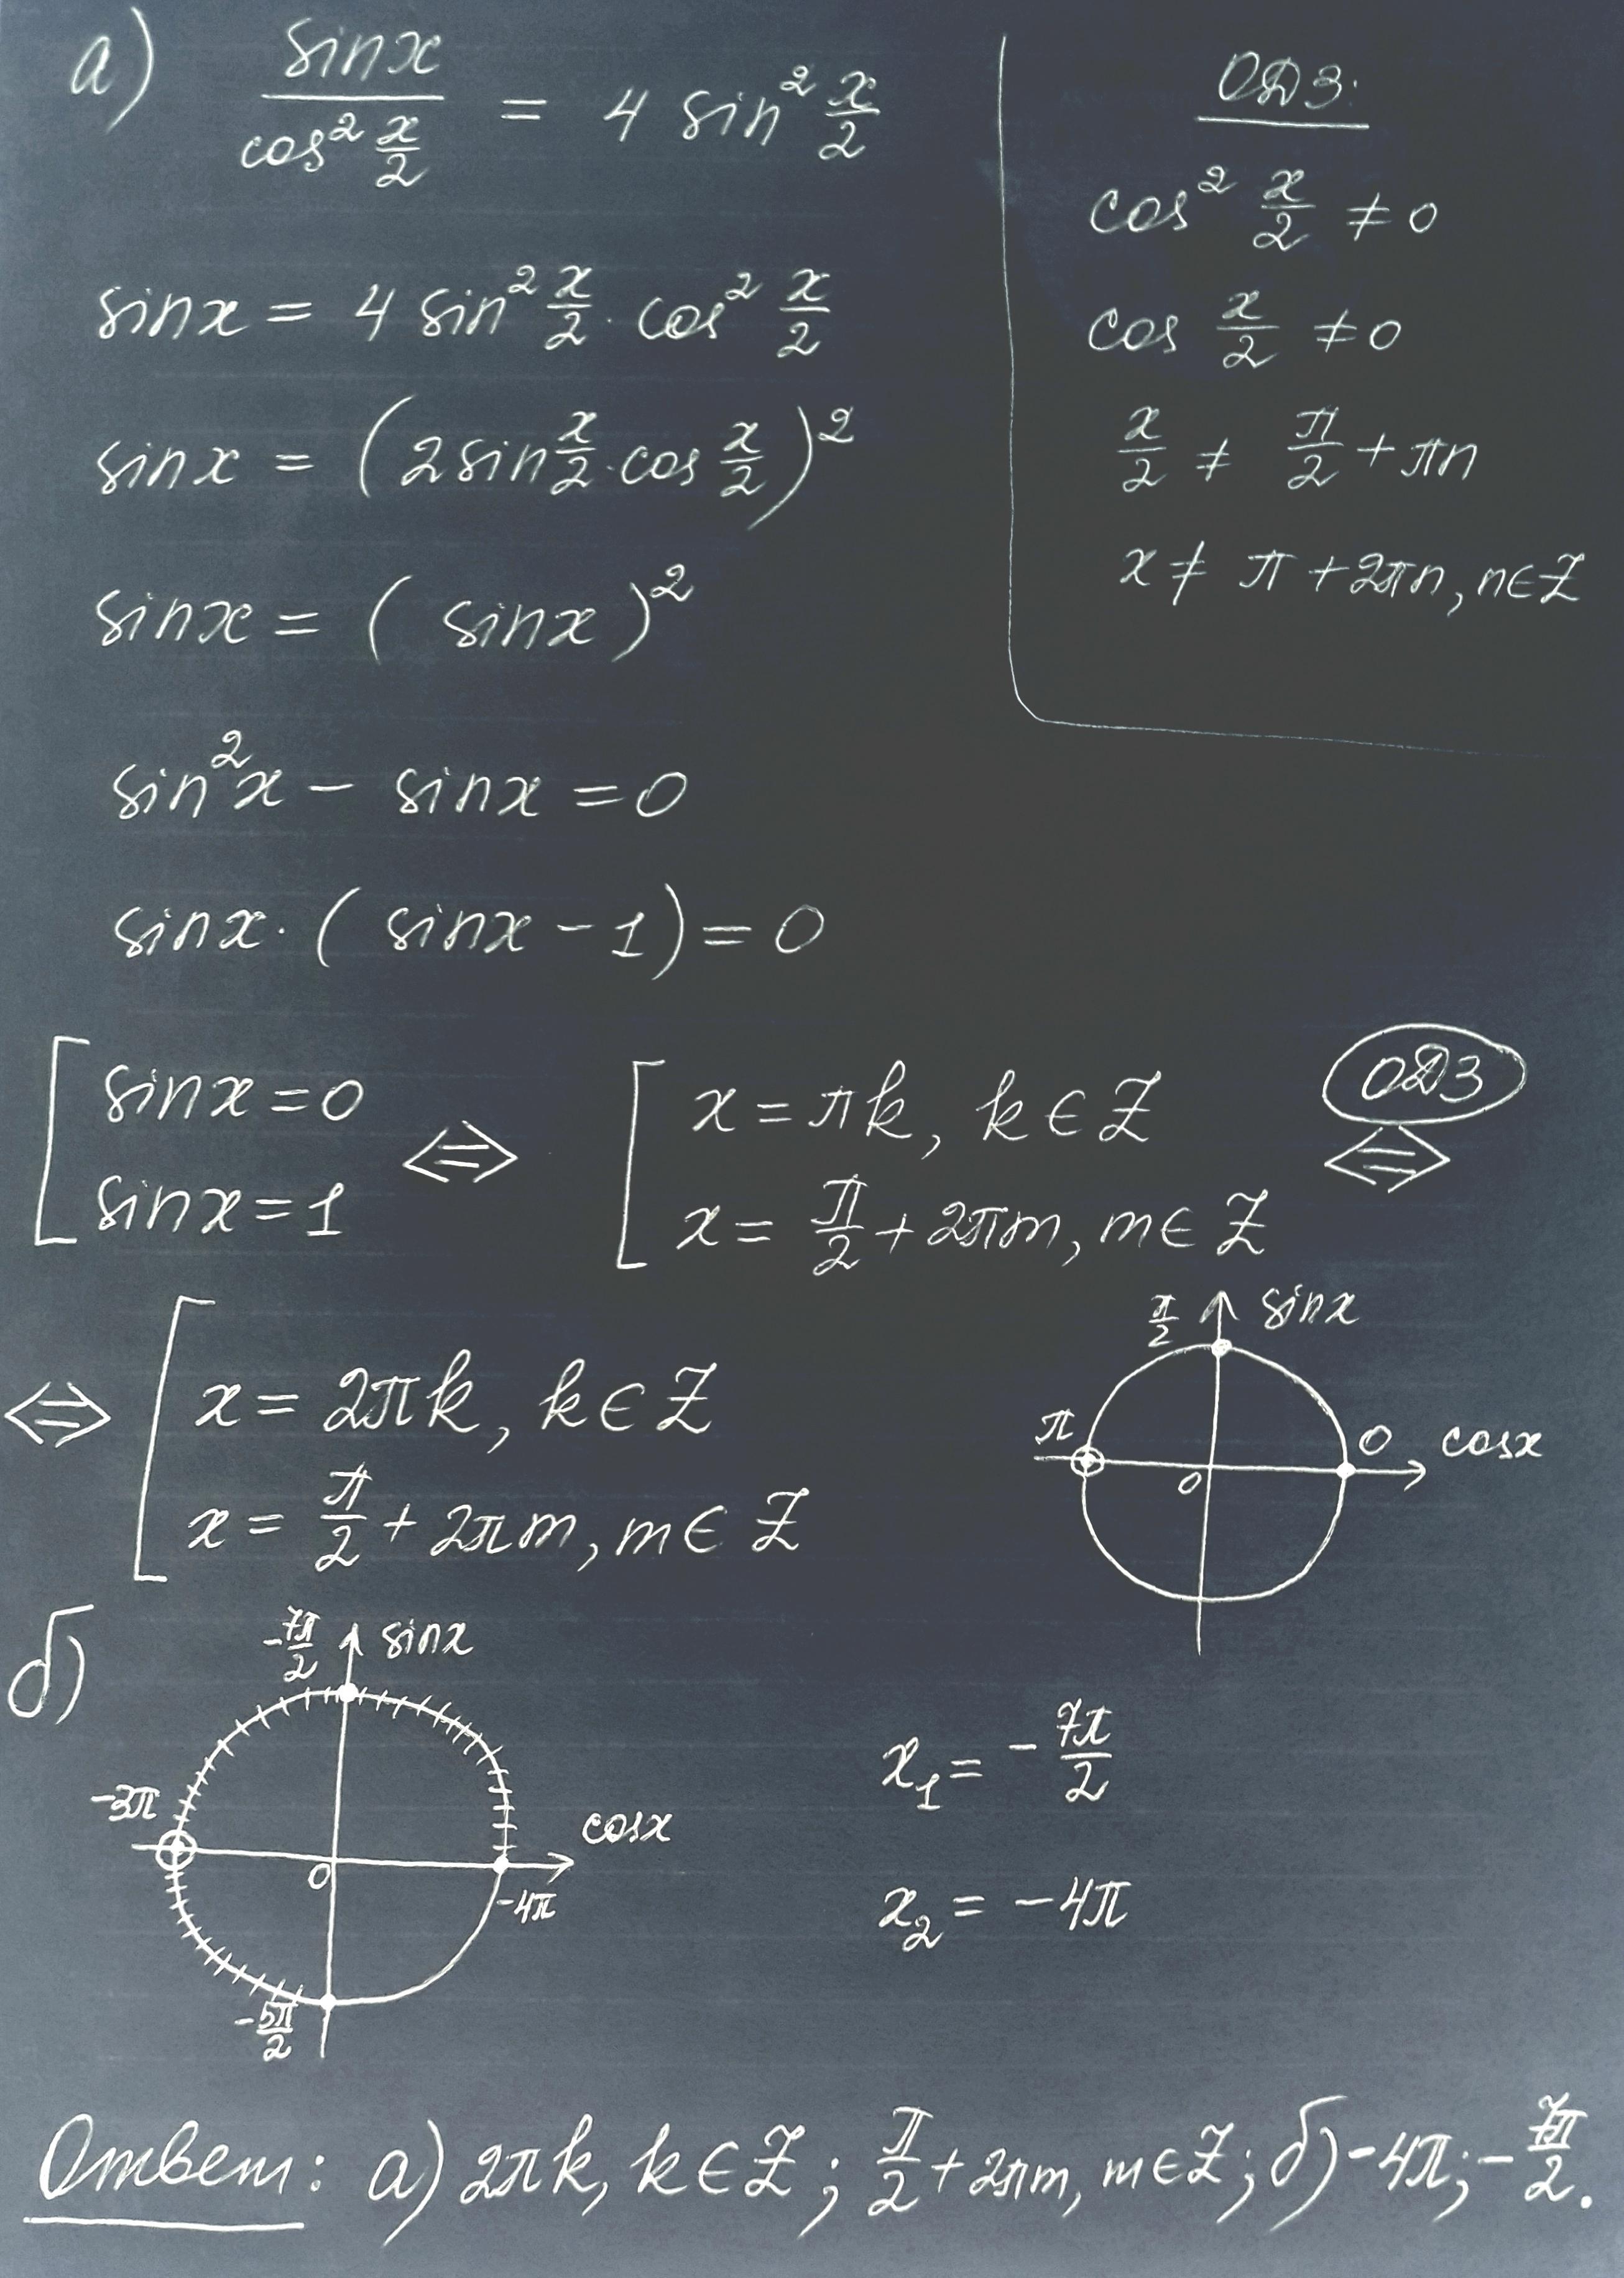 а) sinx / cos² x/2 = 4 sin² x/2
ОДЗ:
cos² x/2 ≠ 0
cos x/2 ≠ 0
x/2 ≠ π/2 + πn
x ≠ π + 2πn, n∈Z
sinx = 4 sin² x/2 · cos² x/2
sinx = (2sin x/2 · cos x/2)²
sinx = ( sinx )²
sin²x - sinx = 0
sinx · ( sinx - 1) = 0
[ sinx = 0
sinx = 1
⇔
[ x = πk, k ∈ Z
x = π/2 + 2πm, m ∈ Z
ОДЗ
⇔
⇔ [ x = 2πk, k ∈ Z
x = π/2 + 2πm, m ∈ Z
π/2 sinx
π 0 cosx
0
б)
-7π/2 sinx
-3π cosx
0 -4π
-5π/2
x₁ = - 7π/2
x₂ = -4π
Ответ: а) 2πk, k ∈ Z; π/2 + 2πm, m ∈ Z; б) -4π; - 7π/2.